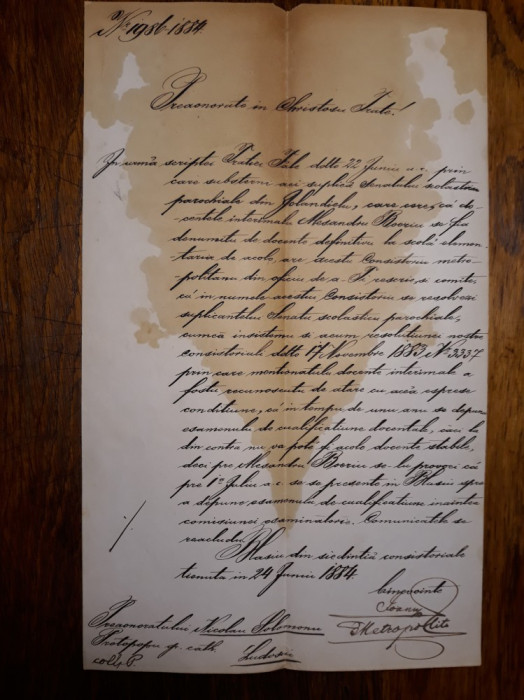 Nr. 1986-1884.
Preaonorate in Christosu Frate!
In urmă scriptei Fratiei Tale ddto 22 Juniu a.c. prin
care substerni aci suplică Senatului scolastic
parochiale din, care cere, că do-
centele interimalu Alesandru Boeriu se fia
denumitu de docente definitivu la scolă elemen-
taria de acolo, are acestu Consistoriu metro-
politanu din oficiu de a Ti rescrie, si comite,
că in numele acestui Consistoriu se resolvezi
suplicantelui Senatu scolasticu parochiale,
cumcă insistemu si acum resolutiunei nostre
consistoriali ddto 17 Novembre 1883 Nr. 3337.
prin care mentionatulu docente interimale a
fostu recunoscutu de atare cu acea esprese
conditiune, că in tempu de unu anu se depuna
esamenulu de cualificatiune docentale, căci la
din contra nu va poté fi acolo docente stabile,
deci pre Alesandru Boeriu se lu provoci că
pre 1a Juliu a.c. se se presente in Blasiu spre
a depune esamenulu de cualificatiune inaintea
comisiunei esaminatorie. Comunicatele se
reacludu.
Blasiu din siedintia consistoriale
tienuta in 24 Juniu 1884.
Joanu
Metropolitu
Preaonoratului Nicolau Solomonu
Protopopu gr. cath.